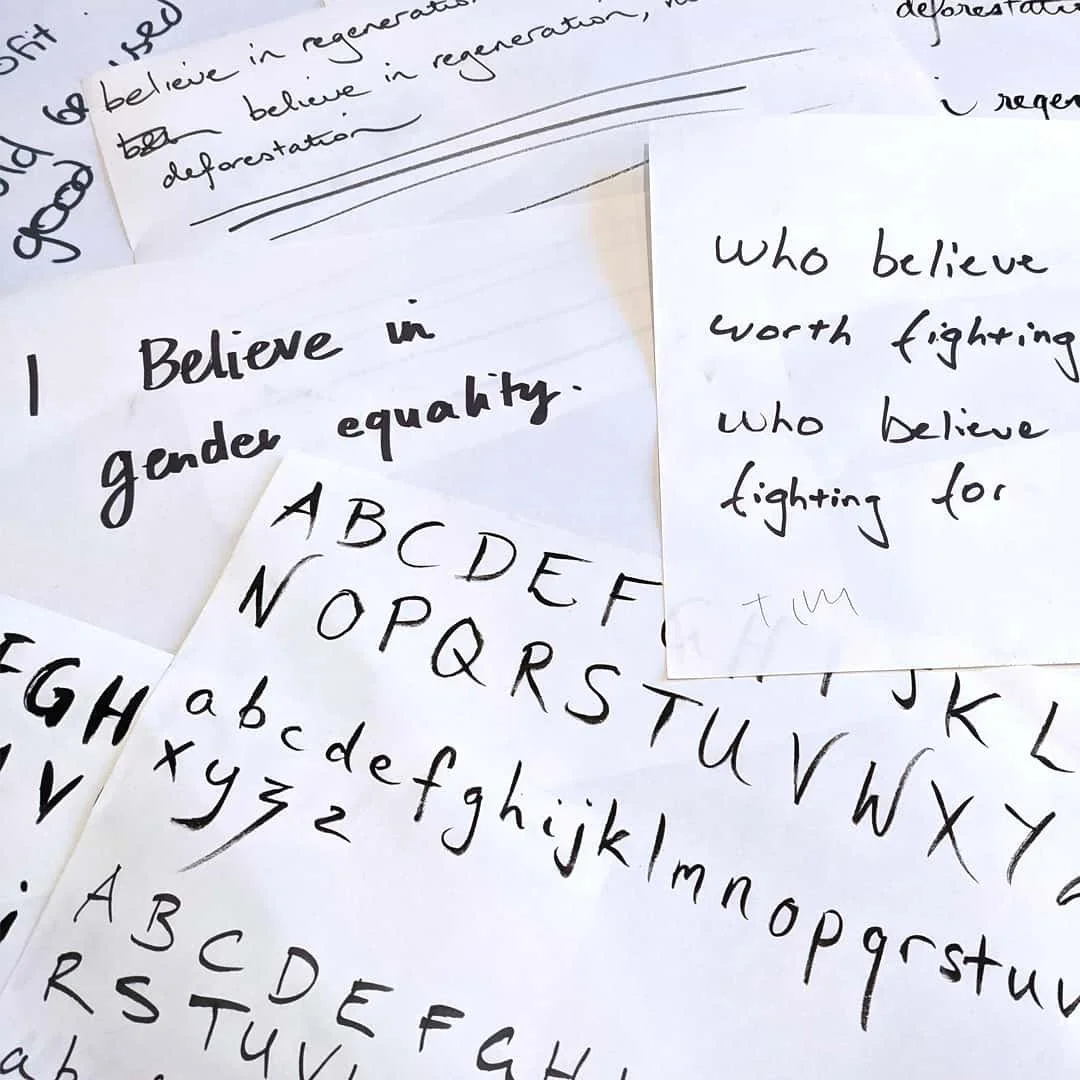 ofit
used
old be
good
believe in regeneratio
believe in regeneration,
deforestation
deforestatio
i regen
I Believe in
gender equality.
who believe
worth fighting
who believe
fighting for
Tim
A B C D E F G H I J K L
N O P Q R S T U V W X Y Z
a b c d e f g h i j k l m n o p q r s t u v
x y z z
F G H
V
i
A B C D E F G H
R S T U V
a b